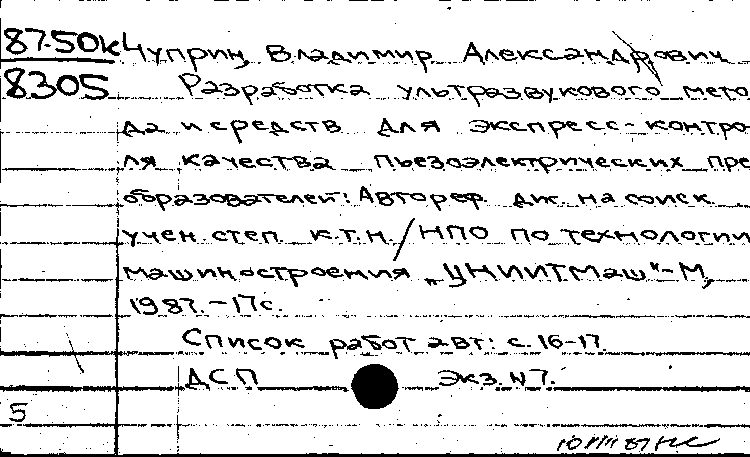 87-50к Чуприн, Владимир Александрович
8305 Разработка ультразвукового мето
да и средств для экспресс-контро
ля качества пьезоэлектрических пре
образователей: Автореф. дис. на соиск.
учен. степ. к.т.н. / НПО по технологии
машиностроения „ЦНИИТМаш“-М,
1987.-17с.
Список работ авт: с. 16-17.
ДСП Экз. N7.
5